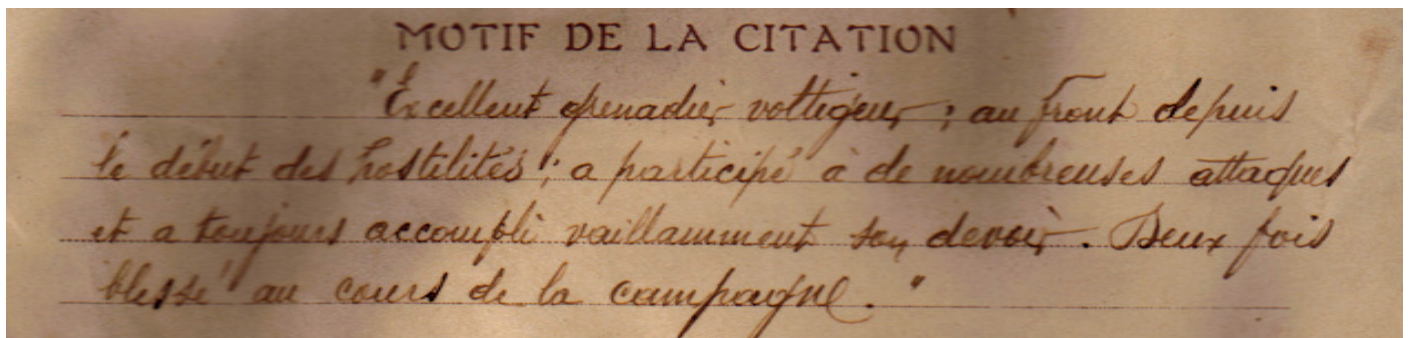 MOTIF DE LA CITATION
"Excellent grenadier voltigeur ; au front depuis
le début des hostilités ; a participé à de nombreuses attaques
et a toujours accompli vaillamment son devoir. Deux fois
blessé au cours de la campagne."